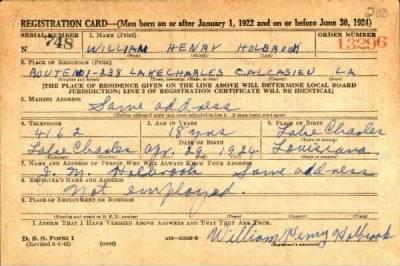 200
REGISTRATION CARD—(Men born on or after January 1, 1922 and on or before June 30, 1924)
SERIAL NUMBER 1. NAME (Print) ORDER NUMBER
748 WILLIAM HENRY HOLBROOK 13296
(First) (Middle) (Last)
2. PLACE OF RESIDENCE (Print)
ROUTE 1-238 LAKE CHARLES CALCASIEU LA
[THE PLACE OF RESIDENCE GIVEN ON THE LINE ABOVE WILL DETERMINE LOCAL BOARD
JURISDICTION; LINE 2 OF REGISTRATION CERTIFICATE WILL BE IDENTICAL]
3. MAILING ADDRESS
Same address
4. TELEPHONE 5. AGE IN YEARS 6. PLACE OF BIRTH
4162 18 yrs Lake Charles
DATE OF BIRTH
Lake Charles 29, 1924 Louisiana
7. NAME AND ADDRESS OF PERSON WHO WILL ALWAYS KNOW YOUR ADDRESS
J. M. Holbrook Same address
8. EMPLOYER'S NAME AND ADDRESS
Not employed.
9. PLACE OF EMPLOYMENT OR BUSINESS
I AFFIRM THAT I HAVE VERIFIED ABOVE ANSWERS AND THAT THEY ARE TRUE.
D. S. S. Form 1 (over) William Henry Holbrook